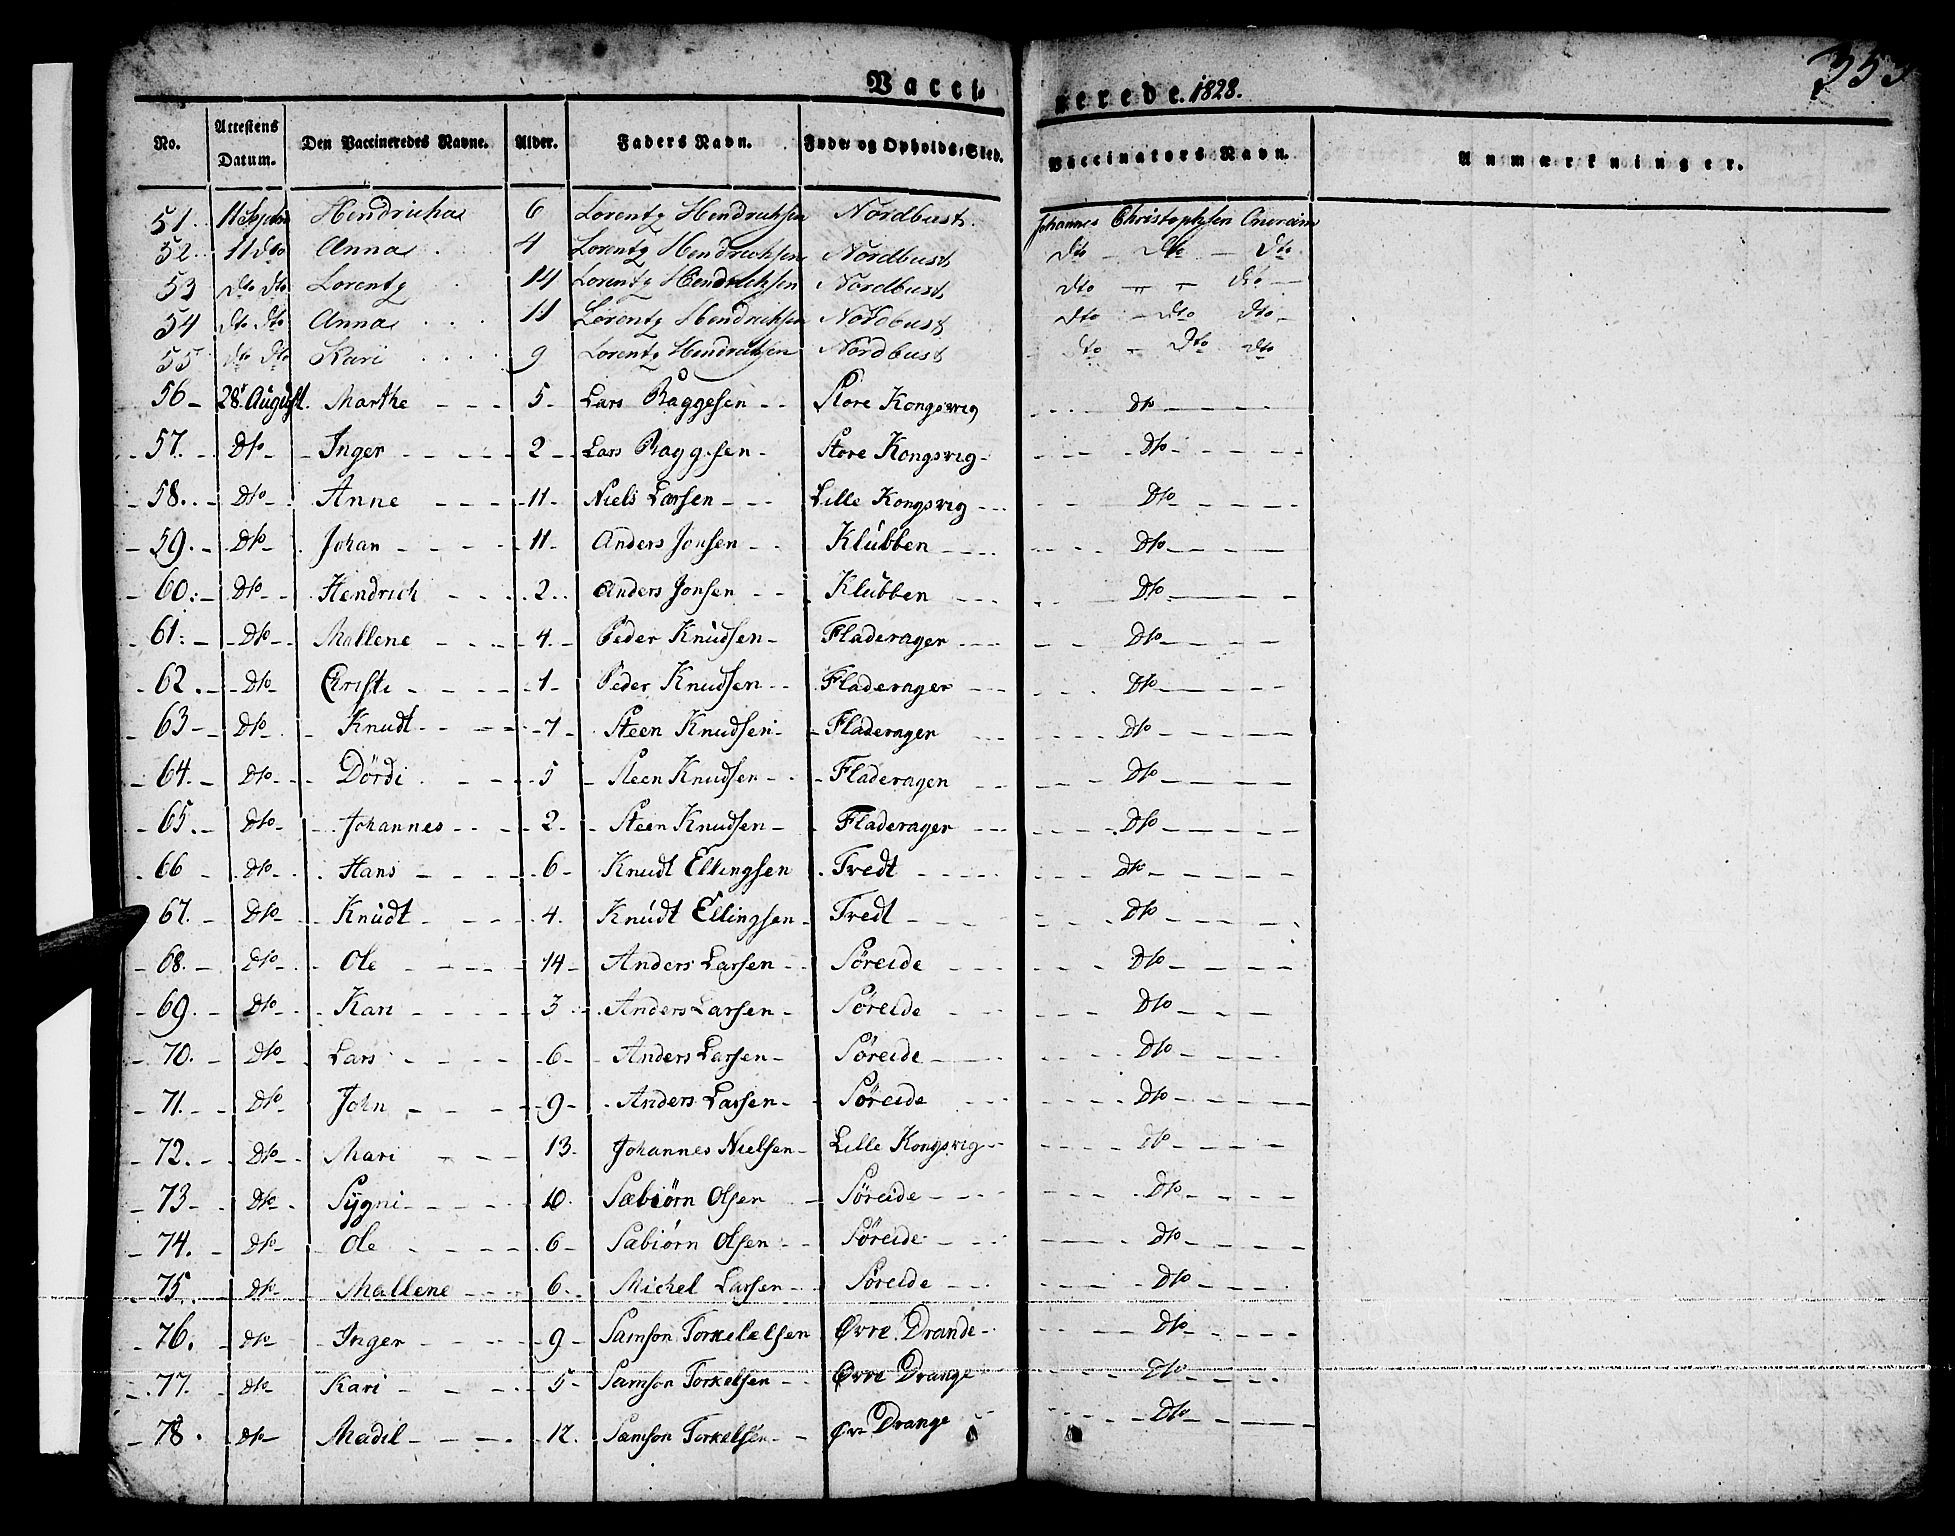 353
Vacci
nerede. 1828.
No. | Attestens Datum. | Den Vaccineredes Navne. | Alder. | Faders Navn. | Føde- og Opholds-Sted. | Vaccinators Navn. | Anmærkninger.
51. 11 Septbr Hendricha 6 Lorentz Hendrichsen Nordbust. Johannes Christophsen
52. 11 dto Anna 4 Lorentz Hendrichsen Nordbust dto - dto - dto
53 dto dto Lorentz 14 Lorentz Hendrichsen Nordbust dto " - dto -
54 dto dto Anna 11 Lorentz Hendrichsen Nordbust dto - dto dto -
55 dto dto Kari 9 Lorentz Hendrichsen Nordbust dto - dto dto
56 - 28 August. Marthe - - - 5 - Lars Baggesen - - Store Kongsvig - - - Dto - - - -
57. - Dto - Inger - - - - 2 - Lars Baggesen - Store Kongsvig - - - - Dto - - - -
58. - Dto - Anne - - - 11 - Niels Larsen - - - Lille Kongsvig - - - - - Dto - - - -
59. - Dto - Johan - - - - 11 - Anders Jonsen - - Klubben - - - - - - Dto - - - -
60. - Dto - Hendrich - - - 2. - Anders Jonsen - - Klubben - - - - - Dto - - - -
61: - Dto - Mallene - - - 4. - Peder Knudsen - Fladerager - - - - - Dto - - - -
62. - Dto - Christi - - - - 1 - Peder Knudsen - - Fladerager - - - - - Dto - - - -
63 - Dto - Knudt - - - - 7 - Steen Knudsen - Fladerager - - - - - Dto - - - -
64. - Dto - - Dördi - - - 5 - Steen Knudsen - - Fladeragen - - - - Dto - - - -
65. - Dto - - Johannes - - - 2. - Steen Knudsen - Fladerager - - - - - - Dto - - - -
66 - Dto - Hans - - - - 6 - Knudt Ellingsen Tredt - - - - - - Dto - - - -
67. - Dto - - Knudt - - - 4. Knudt Ellingsen - Tredt - - - - - Dto - - - -
68. - Dto - - Ole - - - - 14 - Anders Larsen - - Söreide - - - - - - Dto - - - -
69. - Dto - - Kari - - - - 3 - Anders Larsen - Søreide - - - - - Dto - - - -
70. - Dto - Lars - - - - 6 - Anders Larsen - Søreide - - - - - - Dto - - - -
71. - Dto - John - - - - 9 - Anders Larsen - Søreide - - - - - - Dto - - - -
72. - Dto - - Mari - - - 13 - Johannes Nielsen - Lille Kongsvig - - - - Dto - - - -
73 - Dto - Sygni - - - - 10. Sæbiörn Olsen - Söreide - - - - - - Dto - - - -
74. - Dto - Ole - - - - 6 - Sabiörn Olsen - - Söreide - - - - - Dto - - - -
75. - Dto - Mallene - - - 6. - Michel Larsen - - Søreide - - - - - Dto - - - -
76. - Dto - Inger - - - - 9 - Samson Torkelelsen Øvre Drande - - - - Dto - - - -
77. - Dto - Kari - - - - 5 - Samson Torkelsen - - Øvre Drange - - - - Dto - - - -
78. - Dto - Madil - - - - 12. Samson Torkelsen - - Øvr Drange - - - - Dto - - - -